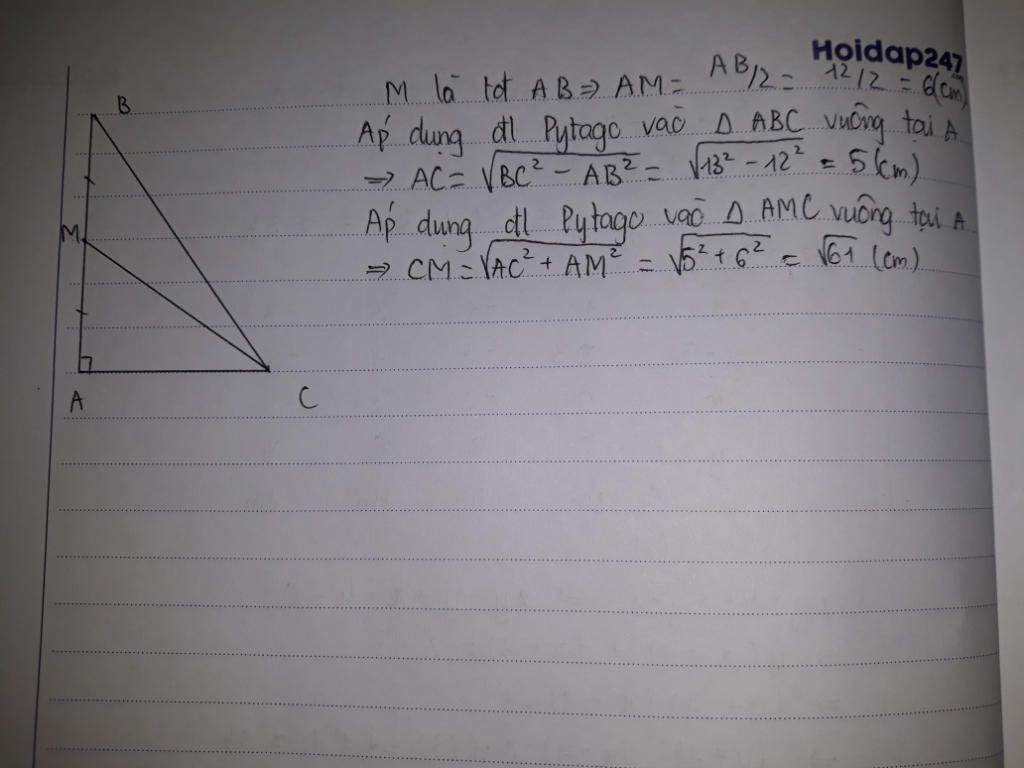 Hoidap247
M là tđ AB ⇒ AM = AB/2 = 12/2 = 6(cm)
Áp dụng đl Pytago vào Δ ABC vuông tại A
⇒ AC = √BC² - AB² = √13² - 12² = 5 (cm)
Áp dụng đl Pytago vào Δ AMC vuông tại A
⇒ CM = √AC² + AM² = √5² + 6² = √61 (cm)
B
M
A
C